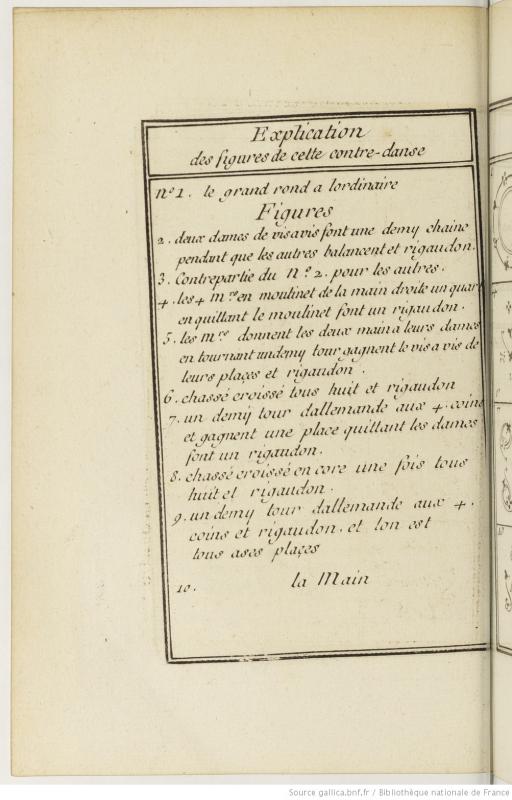 Explication
des figures de cette contre-danse
nº1. le grand rond a lordinaire
Figures
2. deux dames de visavis font une demy chaine
pendant que les autres balancent et rigaudon.
3. Contrepartie du nº2. pour les autres.
4. les 4 mrs en moulinet de la main droite un quar
en quillant le moulinet font un rigaudon.
5. les mrs donnent les deux main a leurs dames
en tournant undemy tour gagnent le vis a vis de
leurs plaçes et rigaudon.
6. chassé croissé tous huit et rigaudon
7. un demy tour dallemande aux 4. coins
et gagnent une place quillant les dames
font un rigaudon.
8. chassé croissé en core une fois tous
huit et rigaudon.
9. un demy tour dallemande aux 4.
coins et rigaudon. et lon est
tous ases plaçes
10. la Main
Source gallica.bnf.fr / Bibliothèque nationale de France